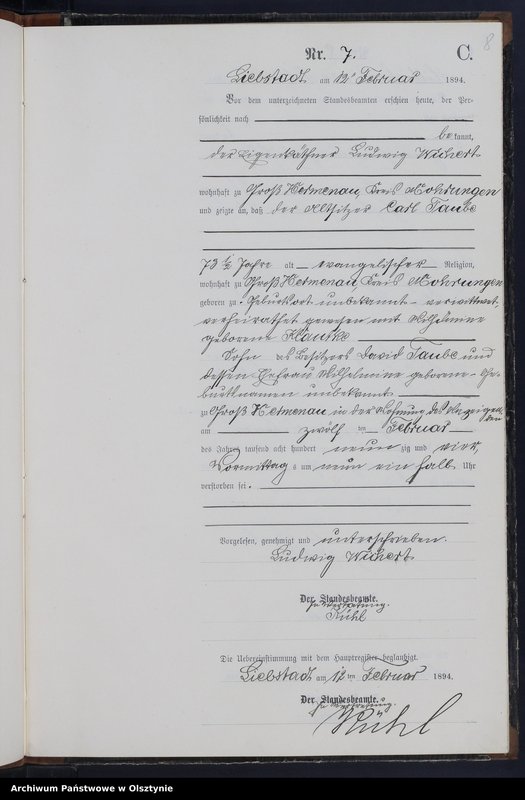 8
Nr. 7. C.
Liebstadt am 12ten Februar 1894.
Vor dem unterzeichneten Standesbeamten erschien heute, der Per-
sönlichkeit nach
bekannt,
der Eigenkäthner Ludwig Wichert
wohnhaft zu Groß Hermenau, Kreis Mohrungen
und zeigte an, daß der Altsitzer Carl Taube
73 ½ Jahre alt evangelischer Religion,
wohnhaft zu Groß Hermenau, Kreis Mohrungen
geboren zu Geburtsort unbekannt verwittwet,
verheirathet gewesen mit Wilhelmine
geborene
Sohn des Besitzers David Taube und
dessen Ehefrau Wilhelmine geborene Ge-
burtsnamen unbekannt
zu Groß Hermenau in der Wohnung des Anzeigen-
den
am zwölf ten Februar
des Jahres tausend acht hundert neun zig und vier,
Vormittag s um neun ein halb Uhr
verstorben sei.
Vorgelesen, genehmigt und unterschrieben.
Ludwig Wichert
Der Standesbeamte.
In Vertretung.
Kühl
Die Uebereinstimmung mit dem Hauptregister beglaubigt.
Liebstadt am 12ten Februar 1894.
Der Standesbeamte.
In Vertretung.
Kühl
Archiwum Państwowe w Olsztynie